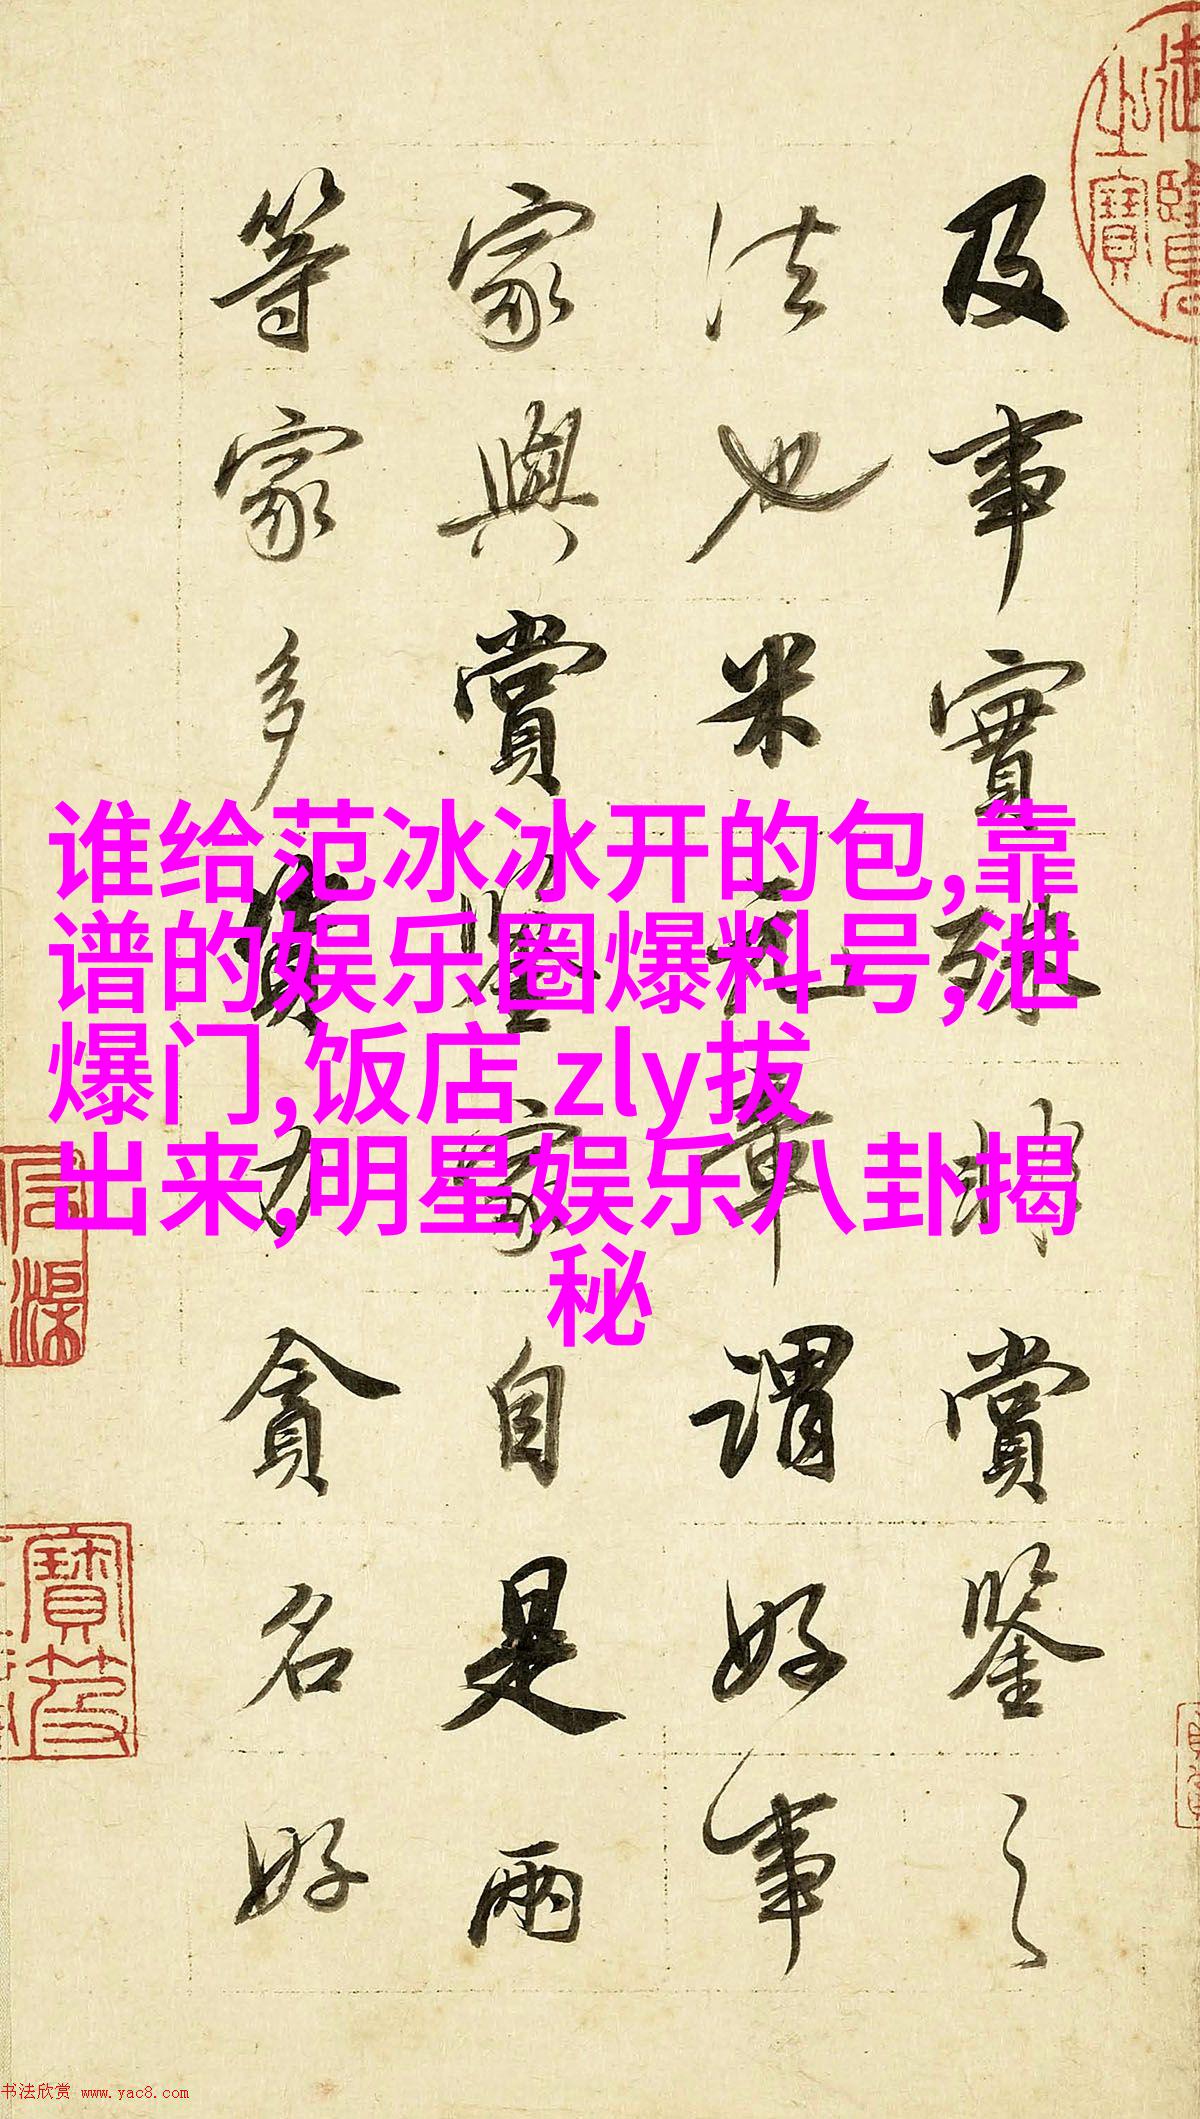 及事實殊時賞鑒之
法也米元章謂好事
家與賞鑒家自是兩
等家多資力貪名好
谁给范冰冰开的包,靠
谱的娱乐圈爆料号,泄
爆门,饭店 zly拔
出来,明星娱乐八卦揭
秘
書法欣赏 www.yac8.com